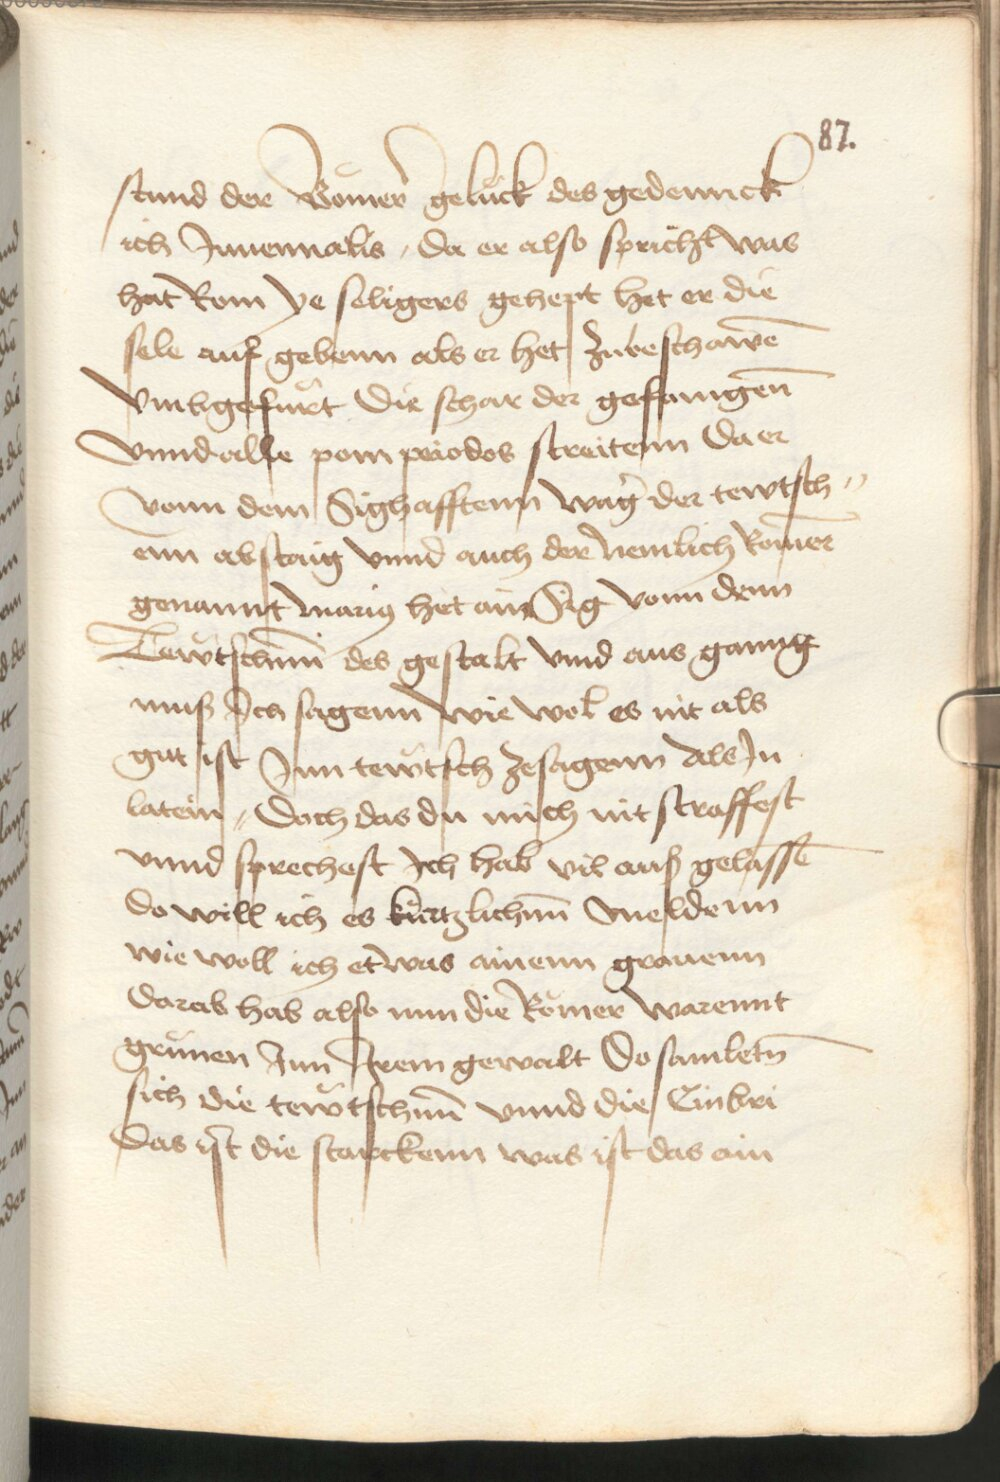 87.
stund der Römer gelück des gedennck
ich Juuennalis, da er also spricht was
hat Rom ye seligers gehept het er die
sele auf gebenn als er het zubeschawē
vmbgefürt die schar der gefanngeñ
vnnd alle pom periodos streitenn da er
vonn dem Sighafftenn wag der tewtsch„
enn abstaig vnnd auch der nemlich Römer
genannt marius het ain Sig vonn denn
Tewtschnn des gestalt vnd aus ganng
muß Ich sagenn wie wol es nit als
gut ist Jnn tewtsch zesagenn als Jn
latein, Doch das du mich nit straffest
vnnd sprechest Ich hab vil auß gelassē
do will ich es kürtzlichnn meldenn
wie woll ich etwas ainenn grauenn
darab hab also nun die Römer warennt
grünen Jnn Jrem gewalt Do samletñ
sich die tewtschnn vnnd die Cinbri
das ist die starckenn was ist das ain